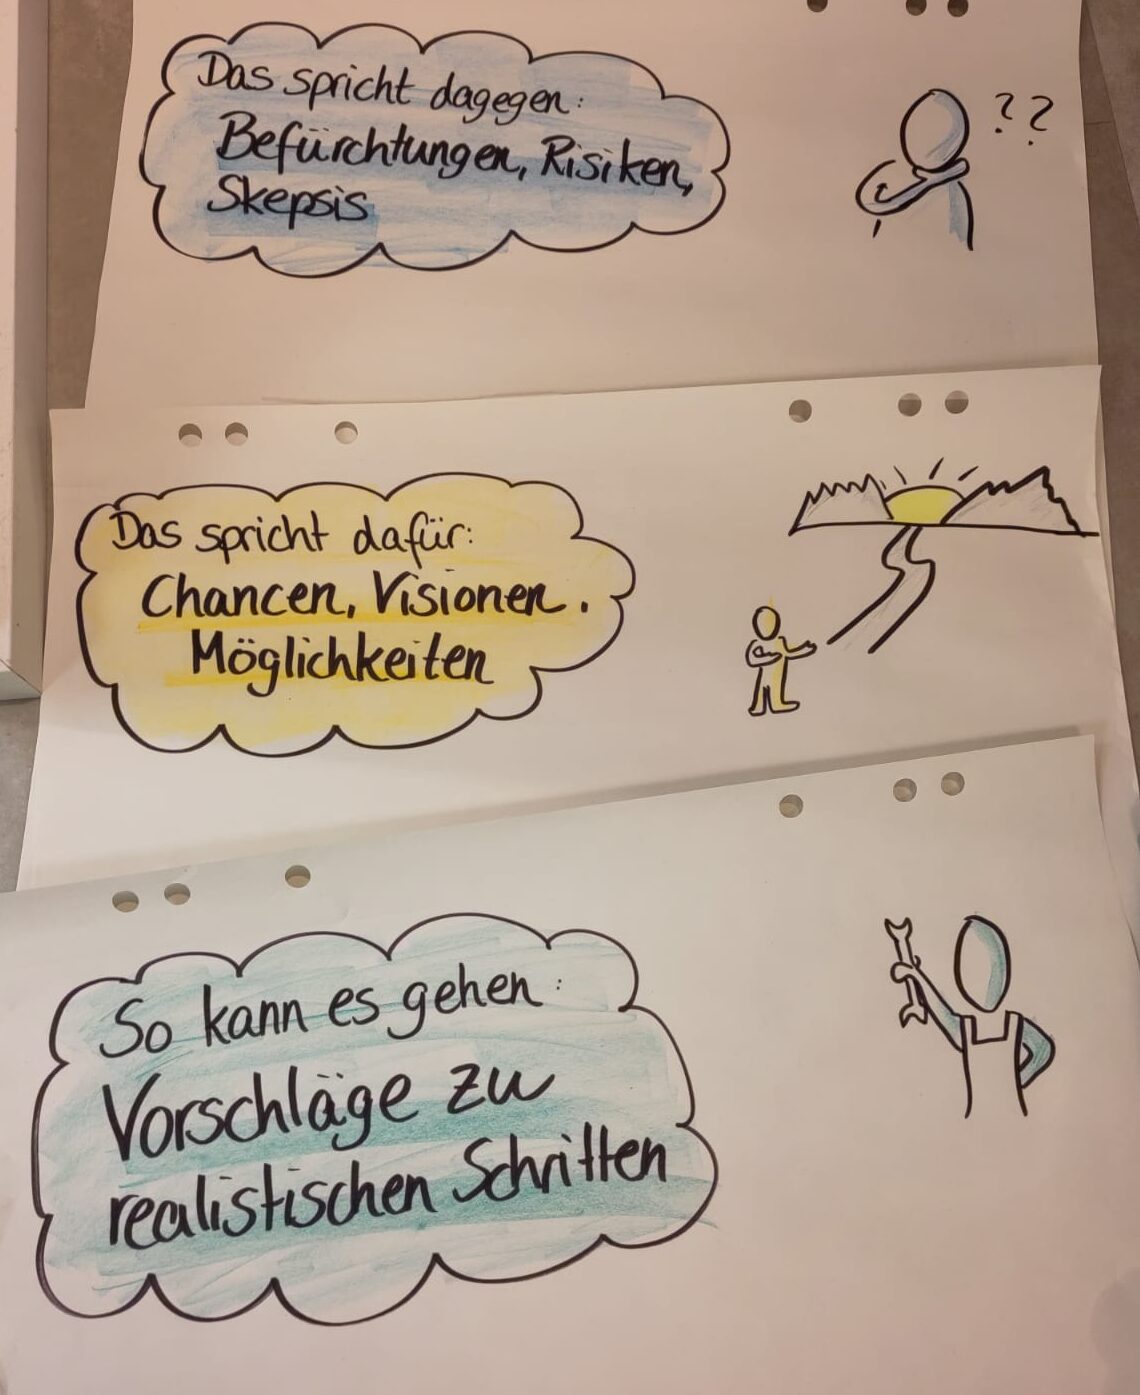 Das spricht dagegen:
Befürchtungen, Risiken,
Skepsis
??
Das spricht dafür:
Chancen, Visionen.
Möglichkeiten
So kann es gehen:
Vorschläge zu
realistischen Schritten